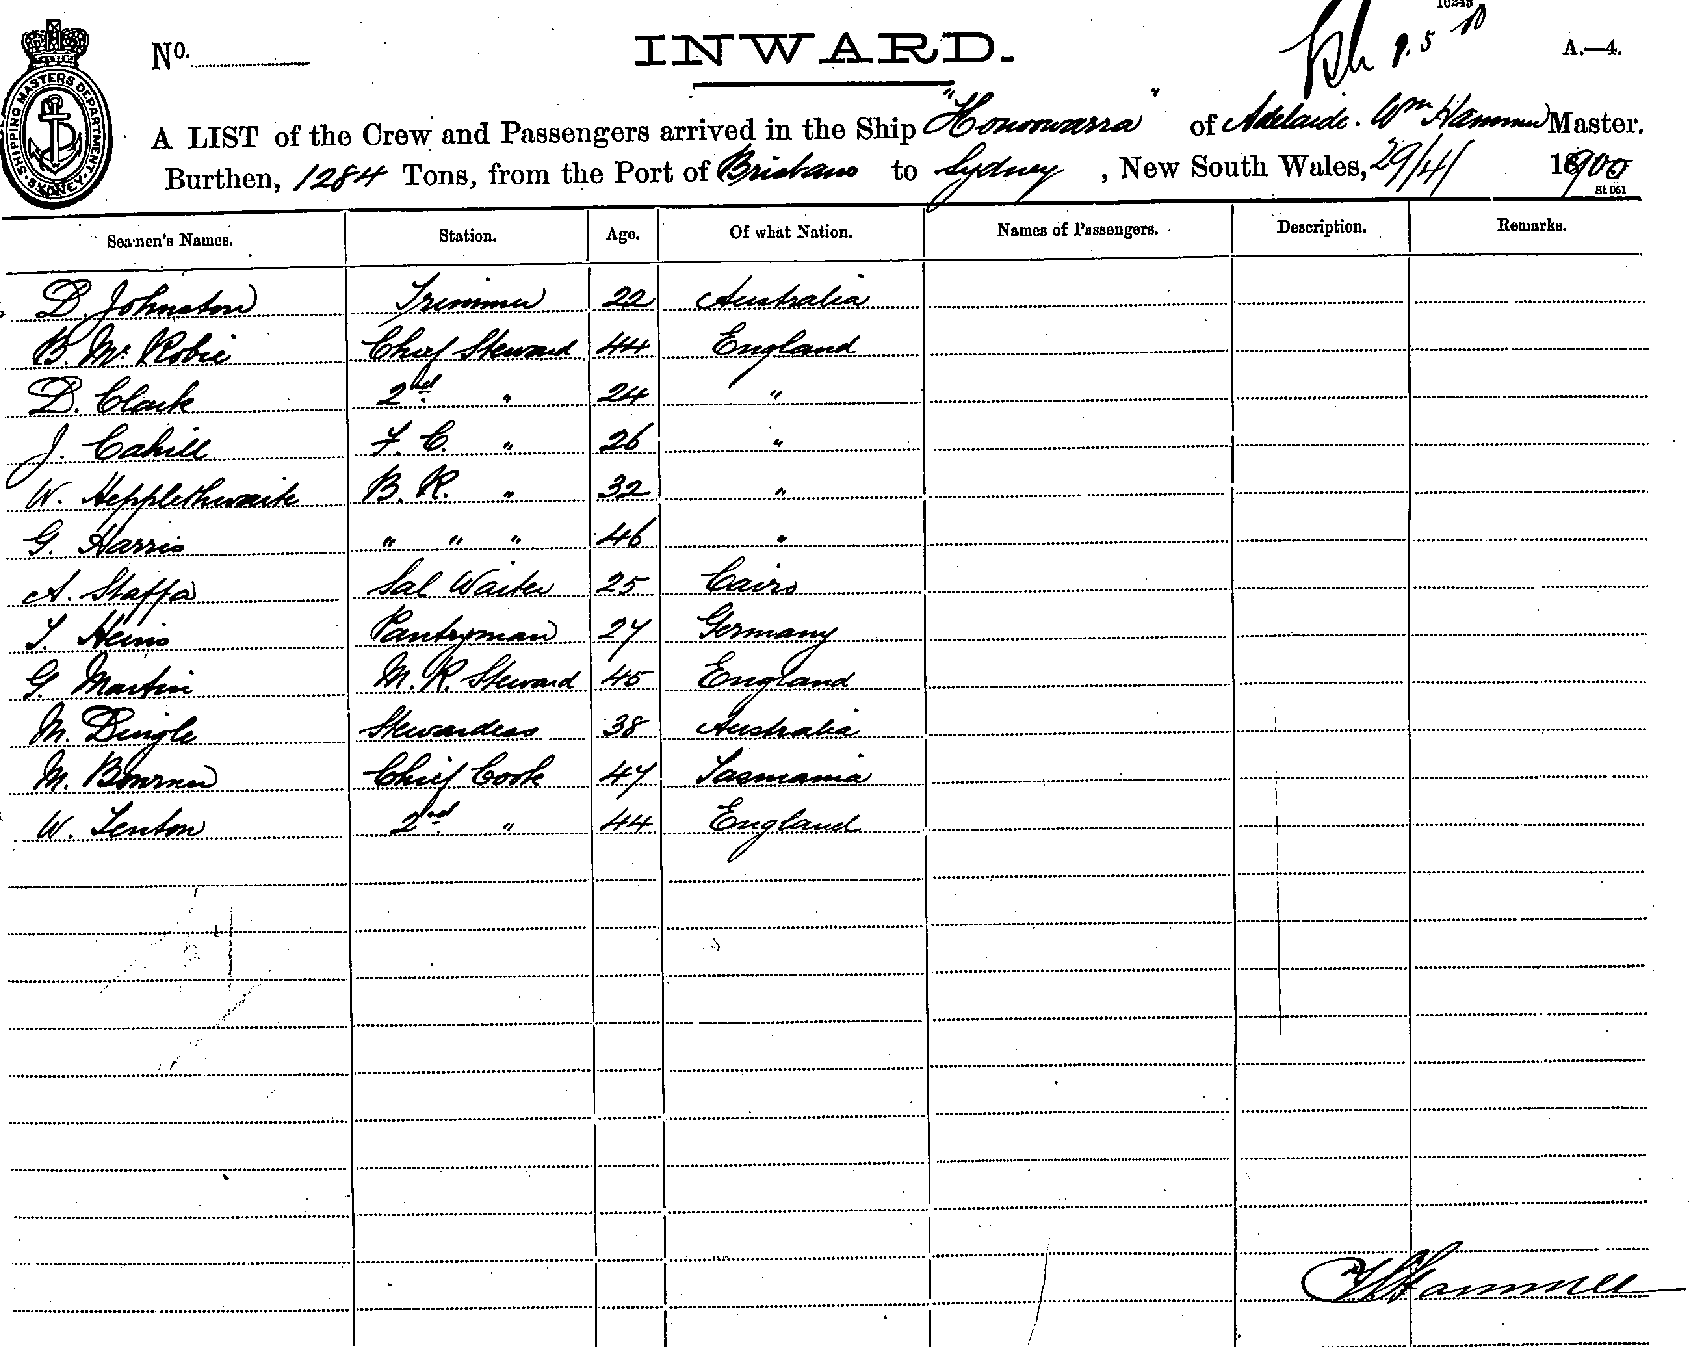 10245
No.
INWARD.
9.5.10
A.—4.
SHIPPING MASTERS DEPARTMENT SYDNEY
A LIST of the Crew and Passengers arrived in the Ship "Konoowarra" of Adelaide. Wm Hammer Master.
Burthen, 1284 Tons, from the Port of Brisbane to Sydney, New South Wales, 29/4/ 1900
St D61
Seamen's Names. Station. Age. Of what Nation. Names of Passengers. Description. Remarks.
D. Johnston Trimmer 22 Australia
B. Mc Robie Chief Steward 44 England
D. Clark 2nd " 24 "
J. Cahill F. C. " 26 "
W. Hepplethwaite B. R. " 32 "
G. Harris " " " 46 "
A. Staffa Sal Waiter 25 Cairo
T. Heins Pantryman 27 Germany
G. Martin M. R. Steward 45 England
M. Dingle Stewardess 38 Australia
M. Chief Cook 47 Tasmania
W. Fenton 2nd " 44 England